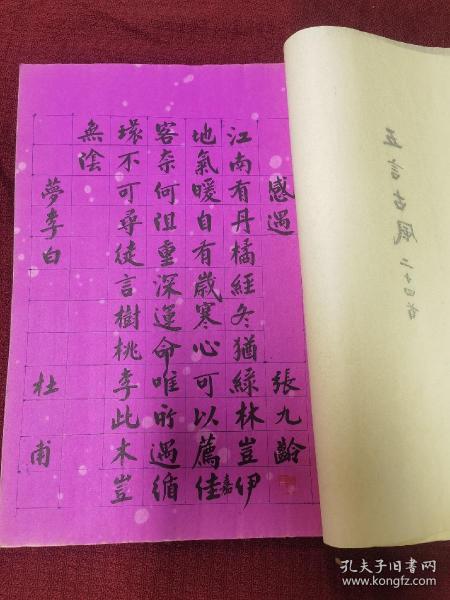 五言古風 二十四首
感遇 張九齡
江南有丹橘經冬猶綠林豈伊
地氣暖自有歲寒心可以薦佳
嘉
客奈何阻重深運命唯所遇循
環不可尋徒言樹桃李此木豈
無陰
夢李白 杜甫
孔夫子旧书网
www.kongfz.com